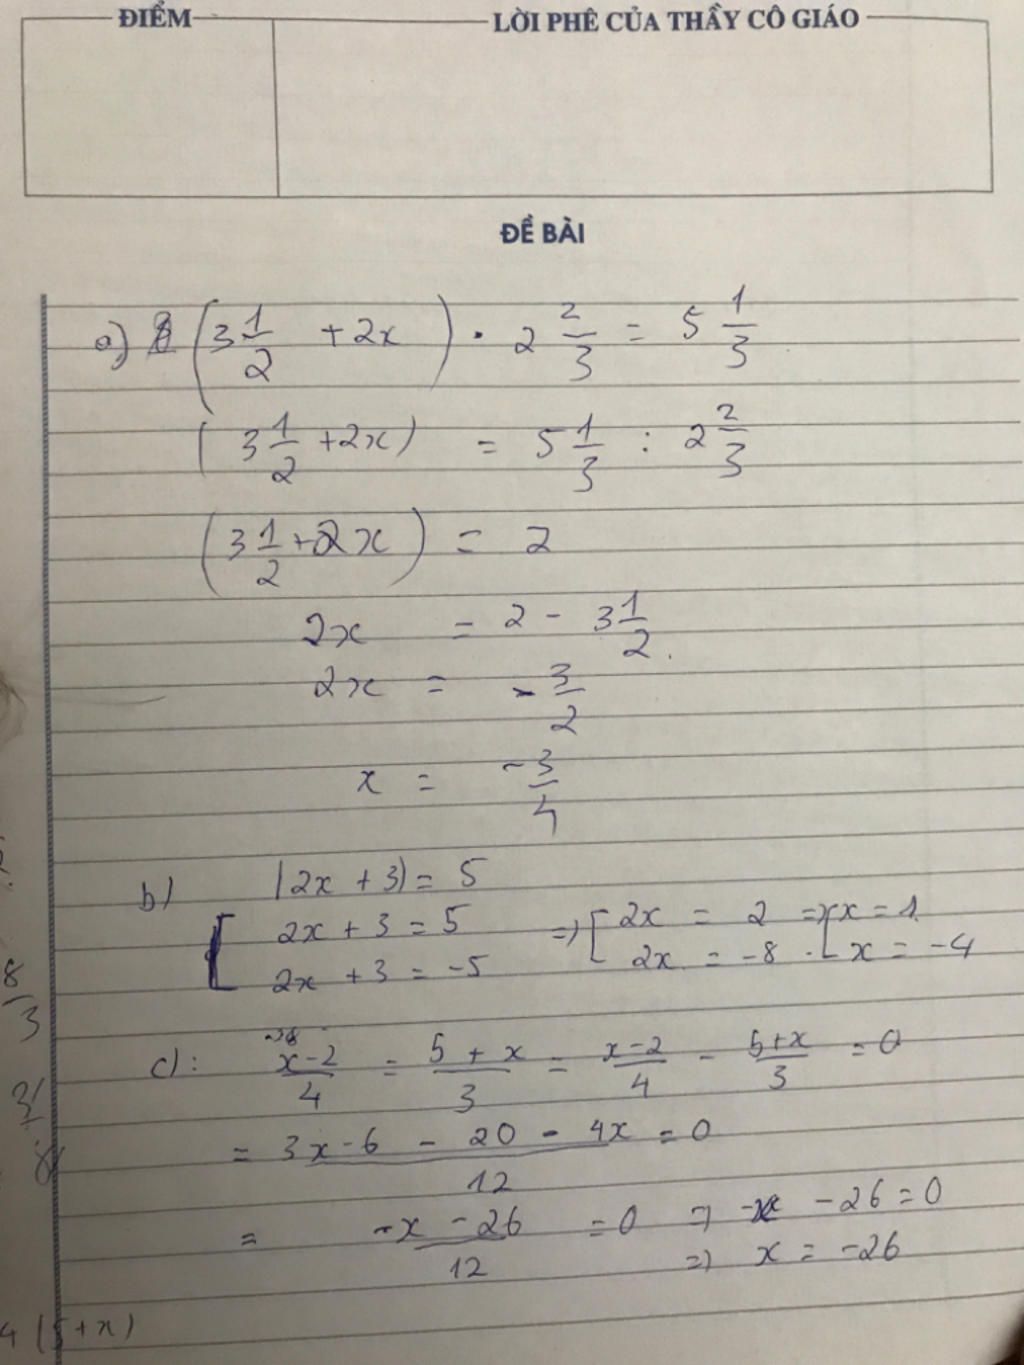 ĐIỂM
LỜI PHÊ CỦA THẦY CÔ GIÁO
ĐỀ BÀI
a) (3 1/2 + 2x) . 2 2/3 = 5 1/3
(3 1/2 + 2x) = 5 1/3 : 2 2/3
(3 1/2 + 2x) = 2
2x = 2 - 3 1/2.
2x = - 3/2
x = - 3/4
b) |2x + 3| = 5
[ 2x + 3 = 5 => [ 2x = 2 => [ x = 1
2x + 3 = -5 2x = -8 x = -4
c): x-2/4 = 5+x/3 = x-2/4 - 5+x/3 = 0
= 3x-6 - 20 - 4x/12 = 0
= -x - 26/12 = 0 => -x - 26 = 0
=> x = -26
8/3
4(5+x)